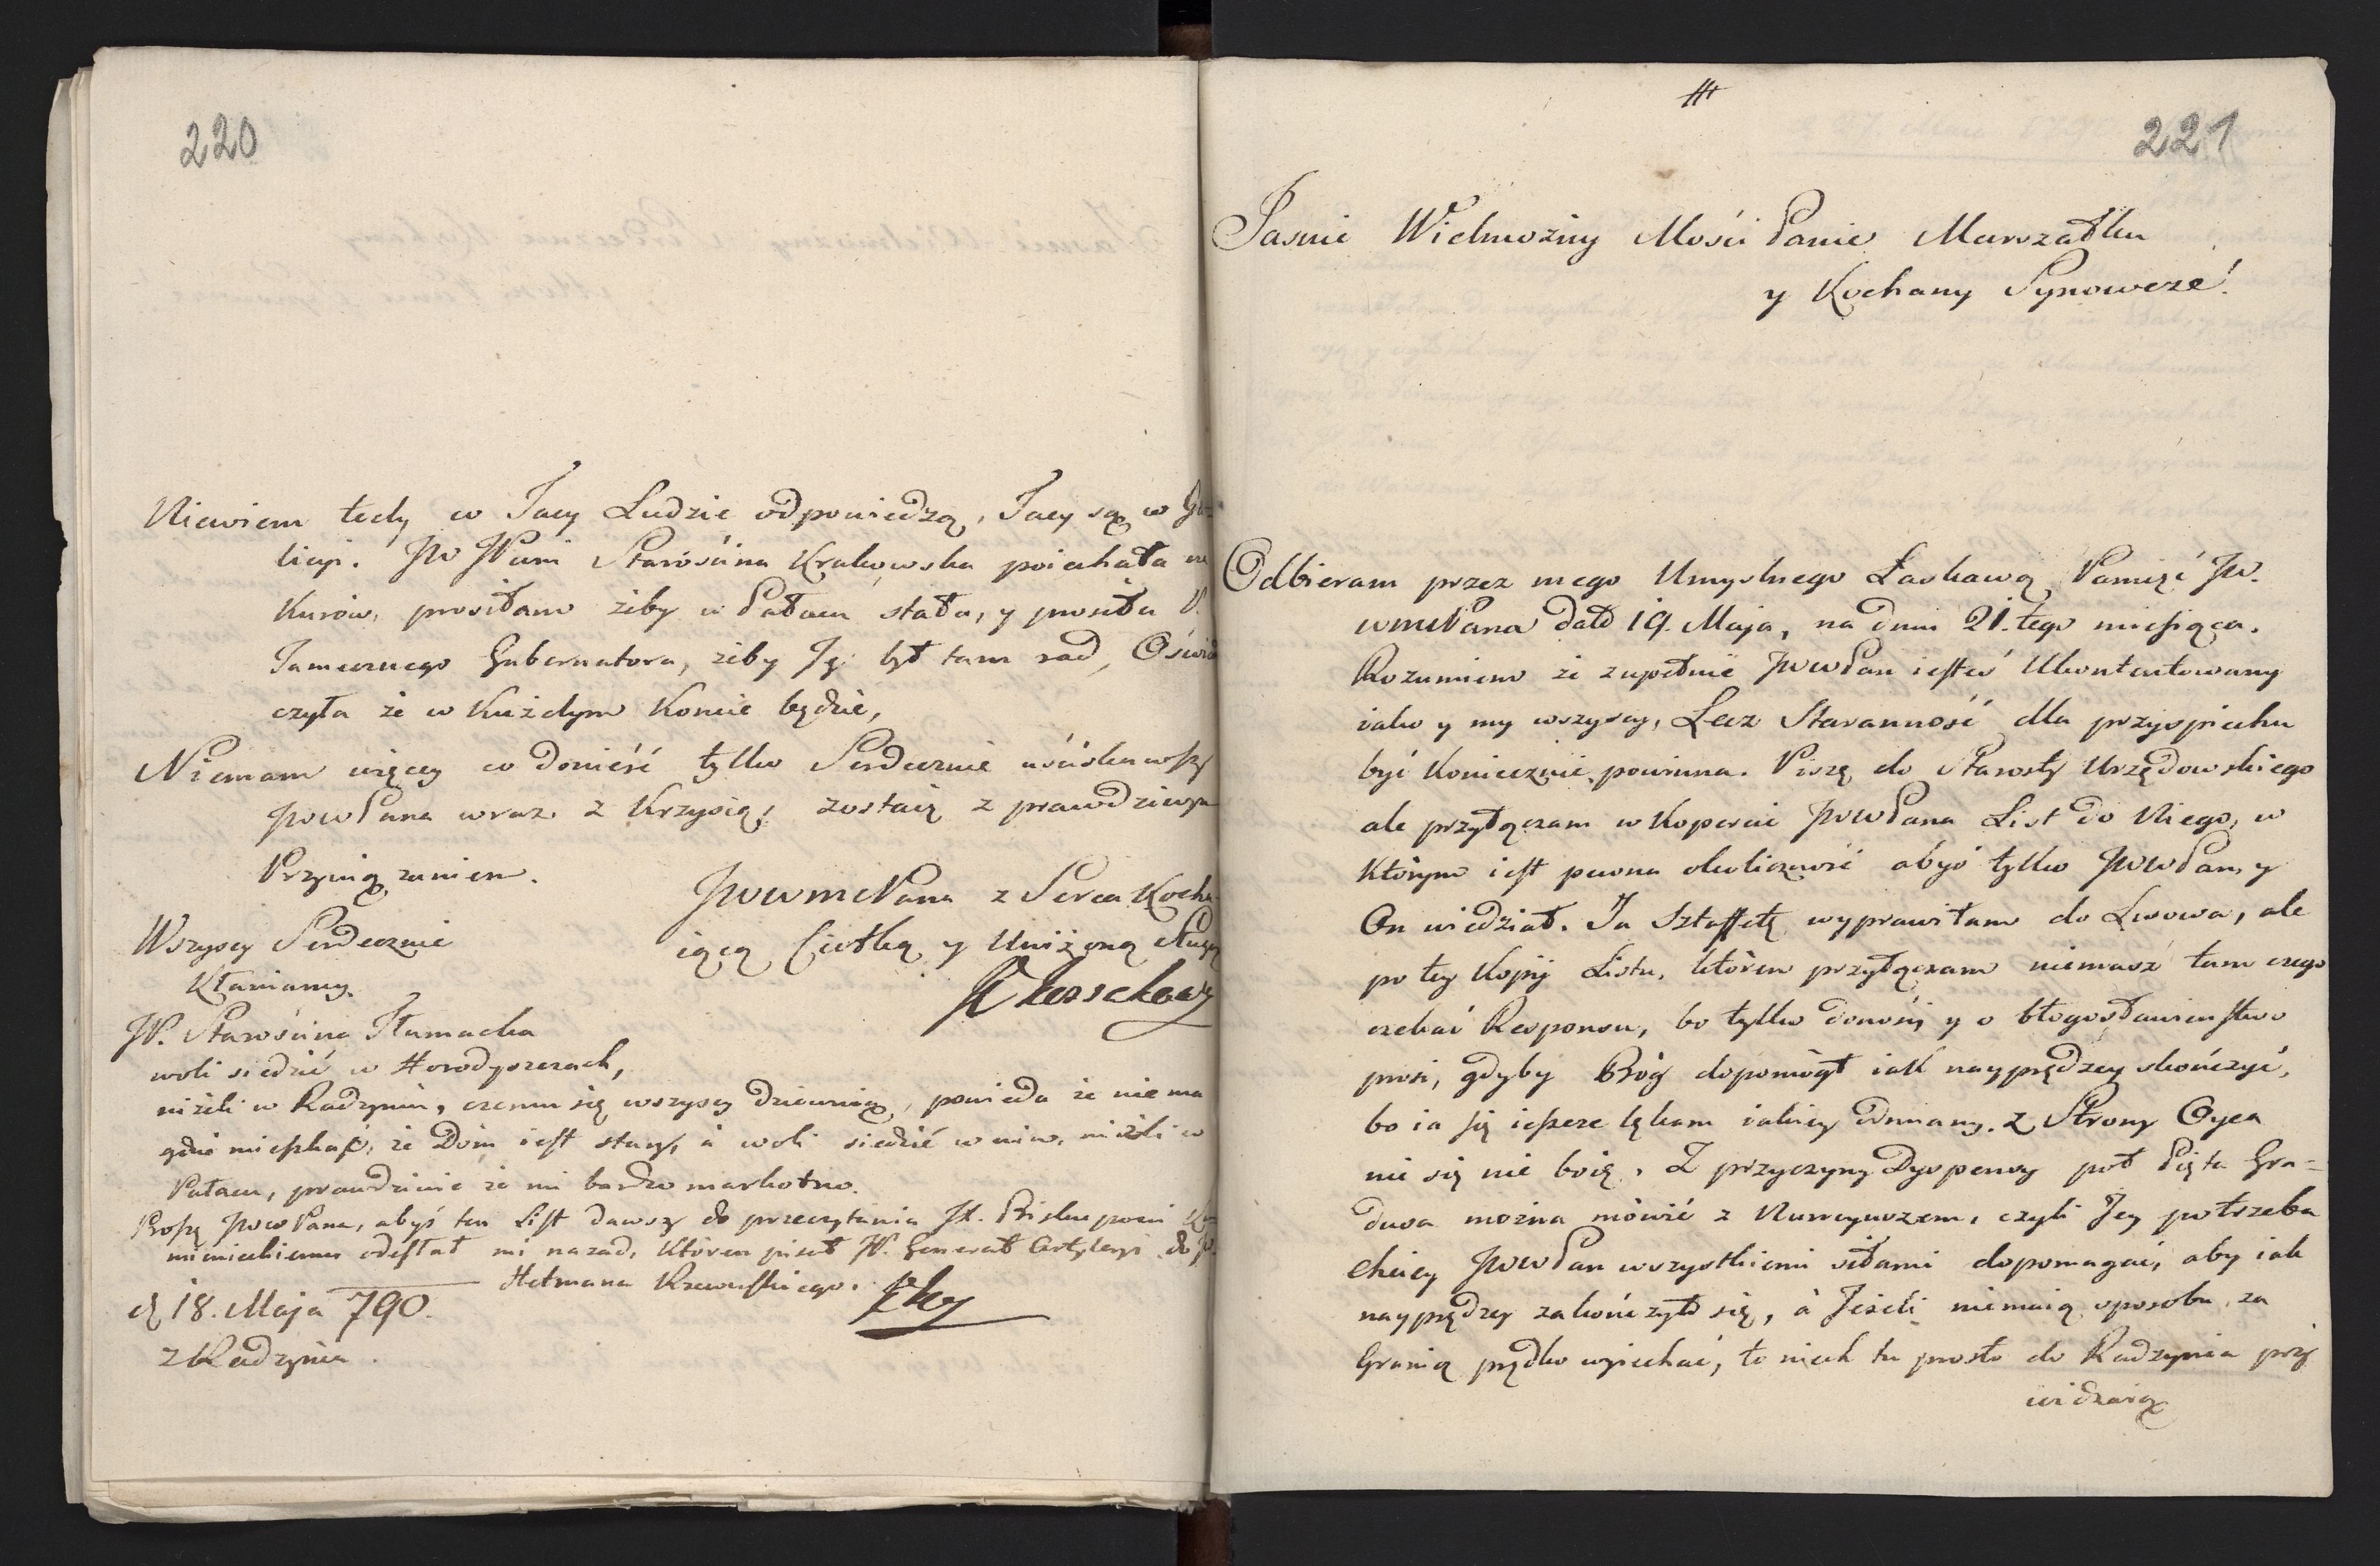 220
Niewiem tedy co Tacy Ludzie odpowiedzą, Tacy są w Ga-
licyi. JW JPani Starościna Krakowska poiechała na
Kurów, prosiłam żeby w Pałacu stała, y prosiła P.
Tamecznego Gubernatora, żeby Ję był tam rad, Oświad
czyła że w Każdym Koncie będzie,
Niemam więcey co donieść tylko Serdecznie uściskawszy
JWWPana wraz z Krzysią, zostaię z prawdziwym
Przywiązaniem.
JWWMCPana z Serca Kocha-
iącą Ciotką y Uniżoną Sługą
Wszyscy Serdecznie
Kłaniamy.
JW. Starościna Tłumacka
woli siedzić w Horodyszczach,
niżeli w Radzyniu, czemu się wszyscy dziwuią, powieda że nie ma
gdzie mieszkać, że Dom iest stary, à woli siedzić w nim, niżeli w
Pałacu, prawdziwie że mi bardzo markotno.
Proszę JWWPana, abyś ten List dawszy do przeczytania JX. Biskupowi Ka-
mienieckiemu odesłał mi nazad, Któren pisał JW. Generał Artyleryi do JW.
Hetmana Rzewuskiego.
d 18. Maja 790.
z Radzynia.
221
Jasnie Wielmożny Mości Panie Marszałku
y Kochany Synowcze!
Odbieram przez mego Umyslnego Łaskawą Pamięć JW.
WMCPana datd 19. Maja, na dniu 21. tego miesiąca.
Rozumiem że zupełnie JWWPan iesteś Ukontentowany
iako y my wszyscy, Lecz Staranność dla przyspiechu
być Koniecznie powinna. Piszę do Starosty Urzędowskiego
ale przyłączam w Kopercie JWWPana List do Niego, w
Którym iest pewna okoliczność abyś tylko JWWPan, y
On wiedział. Ja Sztaffetę wyprawiłam do Lwowa, ale
po tey Kopij Listu, któren przyłączam niemasz tam czego
czekać Responsu, bo tylko donosi y o błogosławieństwo
prosi, gdyby Bóg dopomógł iak nayprędzey skończyć,
bo ia się ieszcze lękam iakiey odmiany. z Strony Oyca
nic się nie boię. Z przyczyny Dyspensy pół Pięta Gra-
dusa można mówić z Nuncyuszem, czyli Jey potrzeba
Chciey JWWPan wszystkiemi siłami dopomagać, aby iak
nayprędzey zakończyło się, à Jeżeli niemaią sposobu za
Granicę prędko wyiechać, to niech tu prosto do Radzynia przy
widzaią